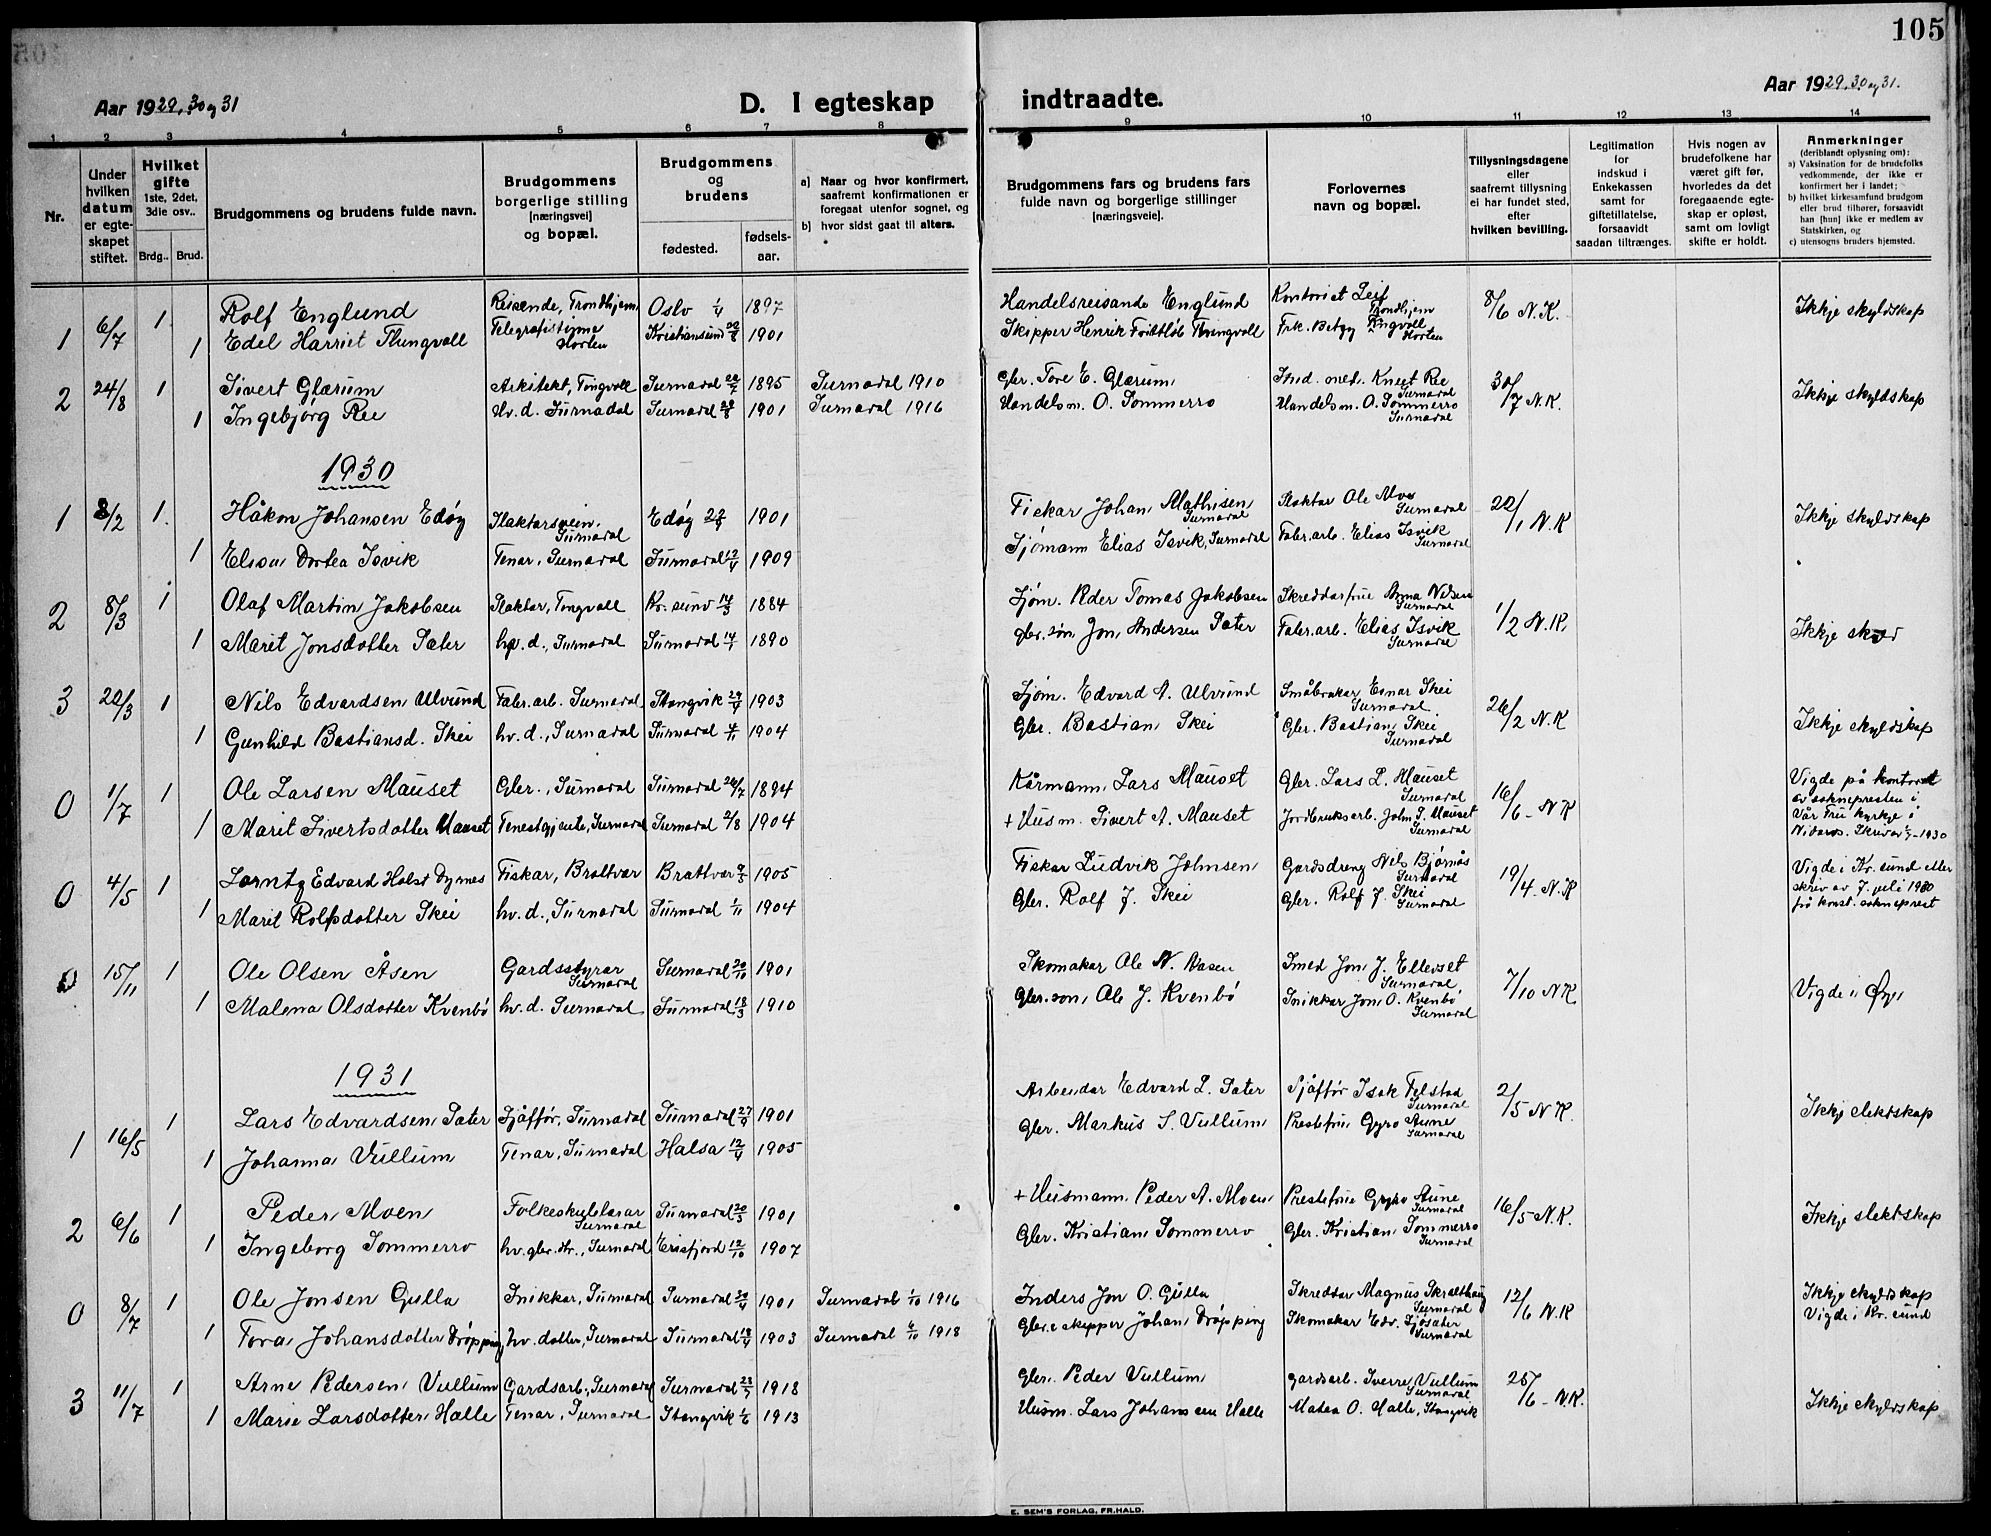 105
Aar 1929, 30 og 31
D. I egteskap indtraadte.
Aar 1929, 30 og 31.
1 2 3 4 5 6 7 8 9 10 11 12 13 14
Nr.
Under hvilken datum er egteskapet stiftet.
Hvilket gifte 1ste, 2det, 3die osv..
Brdg.. Brud.
Brudgommens og brudens fulde navn.
Brudgommens borgerlige stilling [næringsvei] og bopæl.
Brudgommens og brudens
fødested.
fødsels-aar.
a) Naar og hvor konfirmert, saafremt konfirmationen er foregaat utenfor sognet, og
b) hvor sidst gaat til alters.
Brudgommens fars og brudens fars fulde navn og borgerlige stillinger [næringsveie].
Forlovernes navn og bopæl.
Tillysningsdagene eller saafremt tillysning ei har fundet sted, efter hvilken bevilling.
Legitimation for indskud i Enkekassen samt for giftetillatelse, forsaavidt saadan tiltrænges.
Hvis nogen av brudefolkene har været gift før, hvorledes da det foregaaende egteskap er opløst, samt om lovligt skifte er holdt.
Anmerkninger (deriblandt oplysning om):
a) Vaksination for de brudefolks vedkommende, der ikke er konfirmert her i landet;
b) hvilket kirkesamfund brudgom eller brud tilhører, forsaavidt han [hun] ikke er medlem av Statskirken, og
c) utensogns bruders hjemsted.
1 6/7 1 Rolf Englund Reisende, Trondhjem Oslo 1/4 1897 Handelsreisande Englund Kontorist Leif Trondhjem 8/6 N.K. Ikkje skyldskap
1 Edel Harriet Thingvoll Telegrafistinne Horten Kristiansund 1901 Skipper Henrik Thingvoll Frk. Thingvoll Horten
2 24/8 1 Sivert Glærum Arkitekt, Tingvoll Surnadal 1895 Surnadal 1910 Gbr. Tore E. Glærum Knut Ree Surnadal 30/7 N.K. Ikkje skyldskap
1 Ingebjørg Ree Hv. d. Surnadal Surnadal 1901 Surnadal 1916 Handelsm. O. Sommerro Handelsm. O. Sommerro Surnadal
1930
1 8/2 1. Håkon Johansen Edøy Slaktarsvein, Surnadal Edøy 1901 Fiskar Johan Mathisen Surnadal Slaktar Ole Moe Surnadal 22/1 N.K Ikkje skyldskap
1 Elisa Dortea Isvik Tenar, Surnadal Surnadal 12/4 1909 Sjømann Elias Isvik, Surnadal Fabr.arb. Elias Isvik Surnadal
2 8/3 1 Olaf Martin Jakobsen Slaktar, Tingvoll Kr. sund 14/3 1884 Sjøm. Peder Tomas Jakobsen Skreddarfrue Anna Nilsen Surnadal 1/2 N.K. Ikkje
1 Marit Jonsdotter Sæter hv. d., Surnadal Surnadal 14/1 1890 Gbr. søn Jon Andersen Sæter Fabr.arb. Elias Isvik Surnadal
3 22/3 1 Nils Edvardsen Ulvund Fabr.arb. Surnadal Stangvik 1903 Sjøm. Edvard A. Ulvund Småbrukar Einar Skei Surnadal 26/2 N.K Ikkje skyldskap
1 Gunhild Bastiansd. Skei hv. d., Surnadal Surnadal 1904 Gbr. Bastian Skei Gbr. Bastian Skei Surnadal
0 1/7 1 Ole Larsen Mauset Gbr., Surnadal Surnadal 26/7 1894 Kårmann Lars Mauset Gbr. Lars L. Mauset Surnadal 16/6 - N K Vigde på kontoret av soknepresten i Vår Frue kyrkje i Nidaros. 1930
1 Marit Sivertsdotter Mauset Tenestgjente, Surnadal Surnadal 2/8 1904 + Husm. Sivert A. Mauset Jordbruksarb. John S. Mauset Surnadal
0 4/5 1 Lorntz Edvard Holst Dyrnes Fiskar, Brattvær Brattvær 1905 Fiskar Ludvik Johnsen Gardsdreng Nils Bjørnås Surnadal 19/4. N.K Vigde i Kr. sund etter skriv av 7. juli 1930 frå konst. sokneprest
1 Marit Rolfsdotter Skei hv. d., Surnadal Surnadal 1/11 1904 Gbr. Rolf J. Skei Gbr. Rolf J. Skei Surnadal
0 15/11 1 Ole Olsen Åsen Gardsstyrar Surnadal Surnadal 20/10 1901 Skomakar Ole N. Aasen Smed Jon J. Ellevset Surnadal 7/10 N K. Vigde i Øye
1 Malena Olsdotter Kvenbø hv. d. Surnadal Surnadal 18/3 1910 Gbr. son Ole J. Kvenbø Snikkar Jon O. Kvenbø Surnadal
1931
1 16/5 1 Lars Edvardsen Sæter Sjåfför, Surnadal Surnadal 1901 Arbeidar Edvard L. Sæter Sjåfför Isak Telstad Surnadal 2/5 N K. Ikkje slektskap
1 Johanna Vullum Tenar, Surnadal Halsa 12/4 1905 Gbr. Markus S. Vullum Prestefrue Gyro Aune Surnadal
2 6/6 1 Peder Moen Folkeskulelærar Surnadal Surnadal 20/3 1901 + Husmann Peder A. Moen Prestefrue Gyro Aune Surnadal 16/5 N.K. Ikkje slektskap
1 Ingeborg Sommerro hv. gbr. dtr., Surnadal Eresfjord 12/10 1907 Gbr. Kristian Sommerro Gbr. Kristian Sommerro Surnadal
0 8/7 1 Ole Jonsen Gulla Snikkar, Surnadal Surnadal 1901 Surnadal 1/10 1916 Inders Jon O. Gulla Skreddar Magnus Skralthaug Surnadal 12/6 N.K Ikkje skyldskap Vigde i Kr. sund
1 Tora Johansdotter Drøpping hv. dotter, Surnadal Surnadal 18/4 1903 Surnadal 6/10 1918 Gbr. skipper Johan Drøpping Skomakar Edv. Sjøsæter Surnadal
3 11/7 1 Arne Pedersen Vullum Gardsarb., Surnadal Surnadal 1918 Gbr. Peder Vullum Gardsarb. Sverre Vullum Surnadal 25/6 - N.K. Ikkje skyldskap
1 Marie Larsdotter Halle Tenar, Surnadal Stangvik 1/6 1913 Husm. Lars Johansen Halle Matea O. Halle, Stangvik
E. SEM'S FORLAG, FR.HALD.